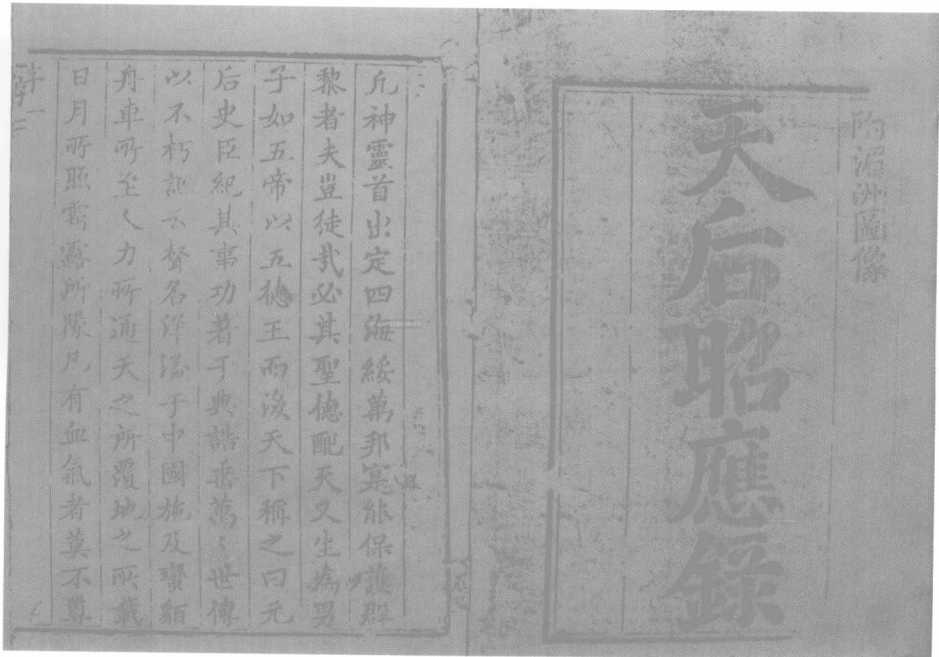 附湄洲圖像
天后昭應錄
凢神靈首出定四海綏萬邦寔能保護群
黎者夫豈徒哉必其聖德配天又生為男
子如五帝以五德王而後天下稱之曰元
后史臣紀其事功著于典誥垂萬〻世傳
以不朽記云聲名洋溢于中國施及蠻貊
舟車所至人力所通天之所覆地之所載
日月所照霜露所隊凡有血氣者莫不尊